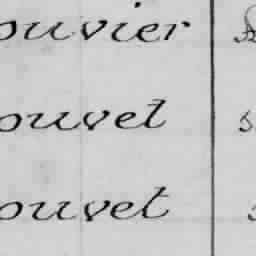 ouvier
ouvet
ouvet